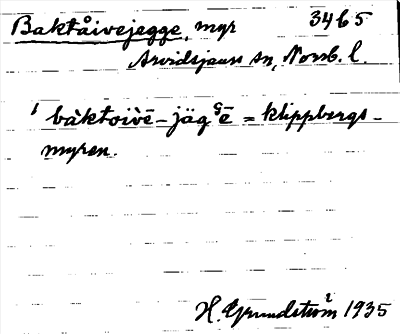 Baktåivejegge, myr 3465
Arvidsjaurs sn, Norrb. l.
bàktoivē-jäg
= klippbergs-
myren.
H. Grundström 1935